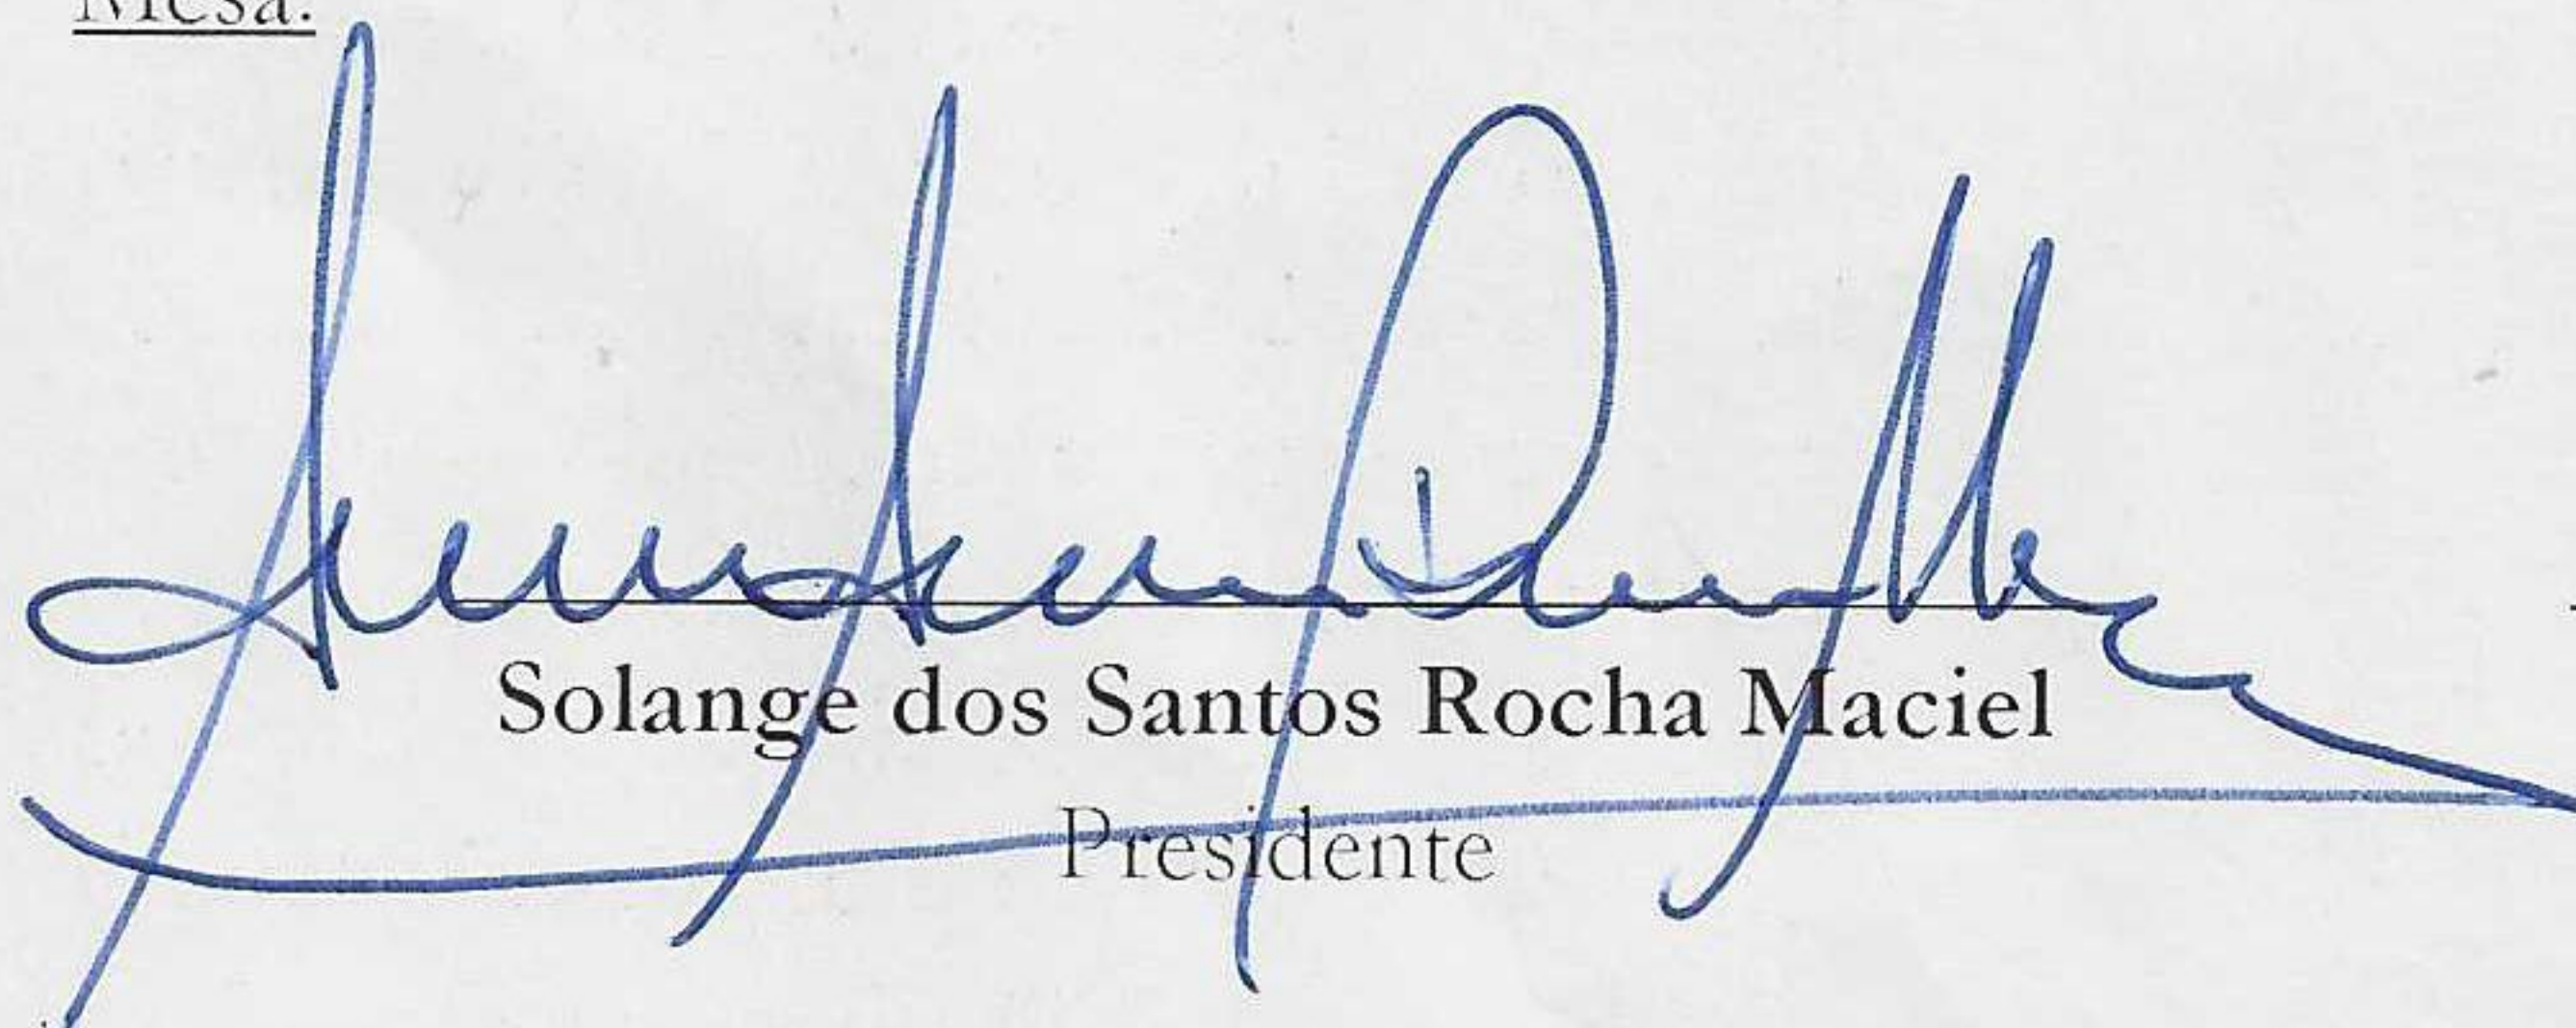 Mesa:
Solange dos Santos Rocha Maciel
Presidente